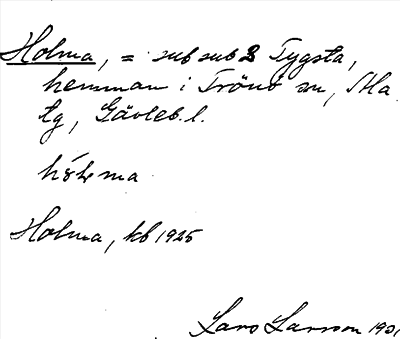 Holma, = sub sub 3 Tygsta,
hemman i Trönö sn, Ala
tg, Gävleb. l.
Holma, kb 1925
Lars Larsson 1931